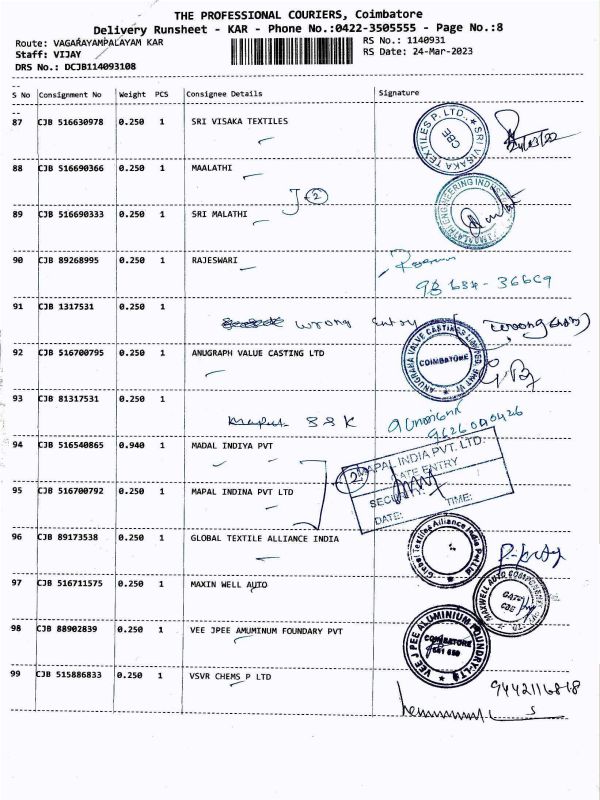 THE PROFESSIONAL COURIERS, Coimbatore
Delivery Runsheet - KAR - Phone No.:0422-3505555 - Page No.:8
Route: VAGARAYAMPALAYAM KAR
RS No.: 1140931
Staff: VIJAY
RS Date: 24-Mar-2023
DRS No.: DCJB114093108
S No Consignment No Weight PCS Consignee Details Signature
87 CJB 516630978 0.250 1 SRI VISAKA TEXTILES
SRI VISAKA TEXTILES P. LTD., CBE
88 CJB 516690366 0.250 1 MAALATHI
2
89 CJB 516690333 0.250 1 SRI MALATHI
90 CJB 89268995 0.250 1 RAJESWARI
91 CJB 1317531 0.250 1
wrong entry
92 CJB 516700795 0.250 1 ANUGRAPH VALUE CASTING LTD
COIMBATORE
93 CJB 81317531 0.250 1
SSK
9626040426
94 CJB 516540865 0.940 1 MADAL INDIYA PVT
2
MAPAL INDIA PVT. LTD.
GATE ENTRY
TIME:
DATE:
95 CJB 516700792 0.250 1 MAPAL INDINA PVT LTD
96 CJB 89173538 0.250 1 GLOBAL TEXTILE ALLIANCE INDIA
Global Textile Alliance India Pvt Ltd
97 CJB 516711575 0.250 1 MAXIN WELL AUTO
GATE
CBE
98 CJB 88902839 0.250 1 VEE JPEE AMUMINUM FOUNDARY PVT
VEE JPEE ALUMINIUM FOUNDRY-LTD
COIMBATORE
99 CJB 515886833 0.250 1 VSVR CHEMS P LTD
9442116818